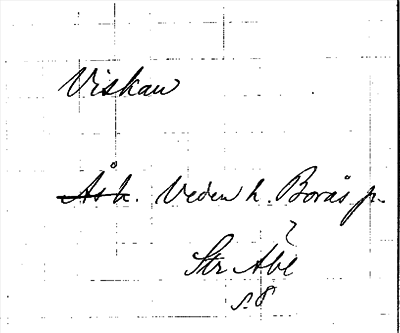 Viskan
Ås h. Veden h. Borås p.
Str Äbl
s. 8